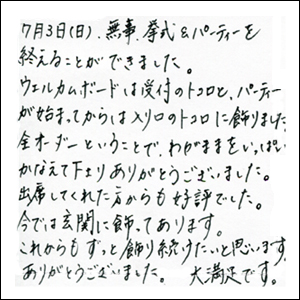 7月3日(日)、無事、挙式&パーティーを
終えることができました。
ウェルカムボードは受付のトコロと、パーティー
が始まってからは入り口のトコロに飾りました
全オーダーということで、わがままをいっぱい
かなえて下さりありがとうございました。
出席してくれた方からも好評でした。
今では玄関に飾ってあります。
これからもずっと飾り続けたいと思います。
ありがとうございました。 大満足です。